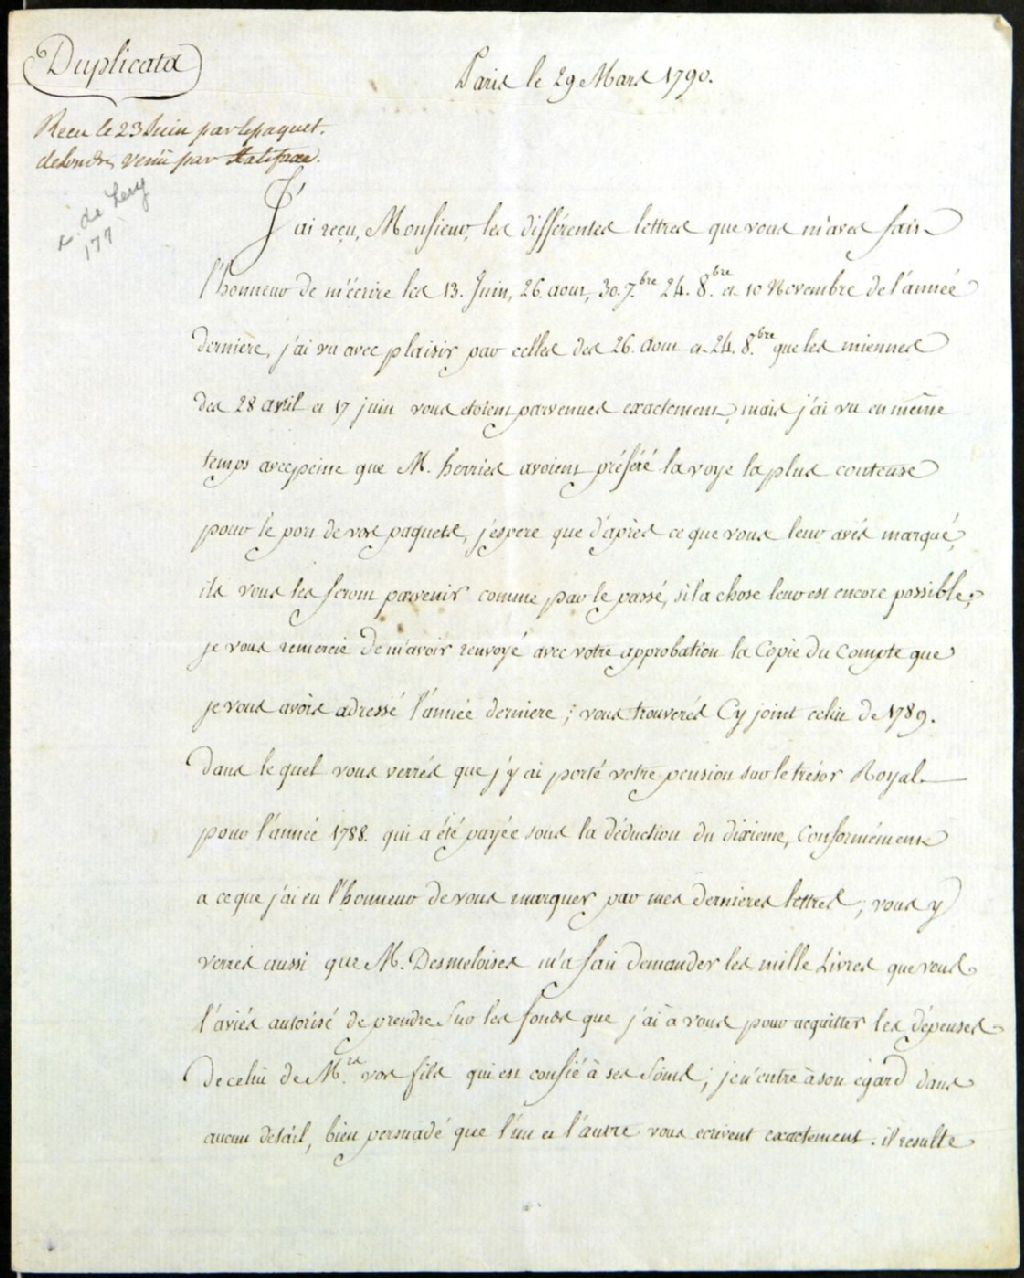 Duplicata
Paris le 29 Mars 1790.
Recu le 23 Juin par le paquet.
de Londres venu par
de Lery
J'ai reçu, Monsieur, les différentes lettres que vous m'avez fait
l'honneur de m'écrire les 13. Juin, 26. aout, 30. 7.bre 24. 8.bre et 10 Novembre de l'année
derniere, j'ai vu avec plaisir par celles des 26. Aout et 24. 8.bre que les miennes
des 28 avril et 17 juin vous etoient parvenues exactement, mais j'ai vu en même
temps avec peine que M. herries avoient préféré la voye la plus couteuse
pour le port de vos paquets, j'espere que d'après ce que vous leur avés marqué,
ils vous les feront parvenir comme par le passé, si la chose leur est encore possible;
je vous remercie de m'avoir renvoyé avec votre approbation la Copie du Compte que
je vous avois adressé l'année derniere; vous trouverés Cy joint celui de 1789.
Dans le quel vous verrés que j'y ai porté votre pension sur le trésor Royal
pour l'année 1788. qui a été payée sous la déduction du dixieme, Conformément
a ce que j'ai eu l'honneur de vous marquer par mes dernieres lettres; vous y
verrés aussi que M. Desmeloises m'a fait demander les mille Livres que vous
l'aviés autorisé de prendre sur les fonds que j'ai à vous pour acquitter les dépenses
de celui de M.rs vos fils qui est confié à ses soins; je n'entre à son égard dans
aucun détail, bien persuadé que l'un et l'autre vous ecrivent exactement. il resulte